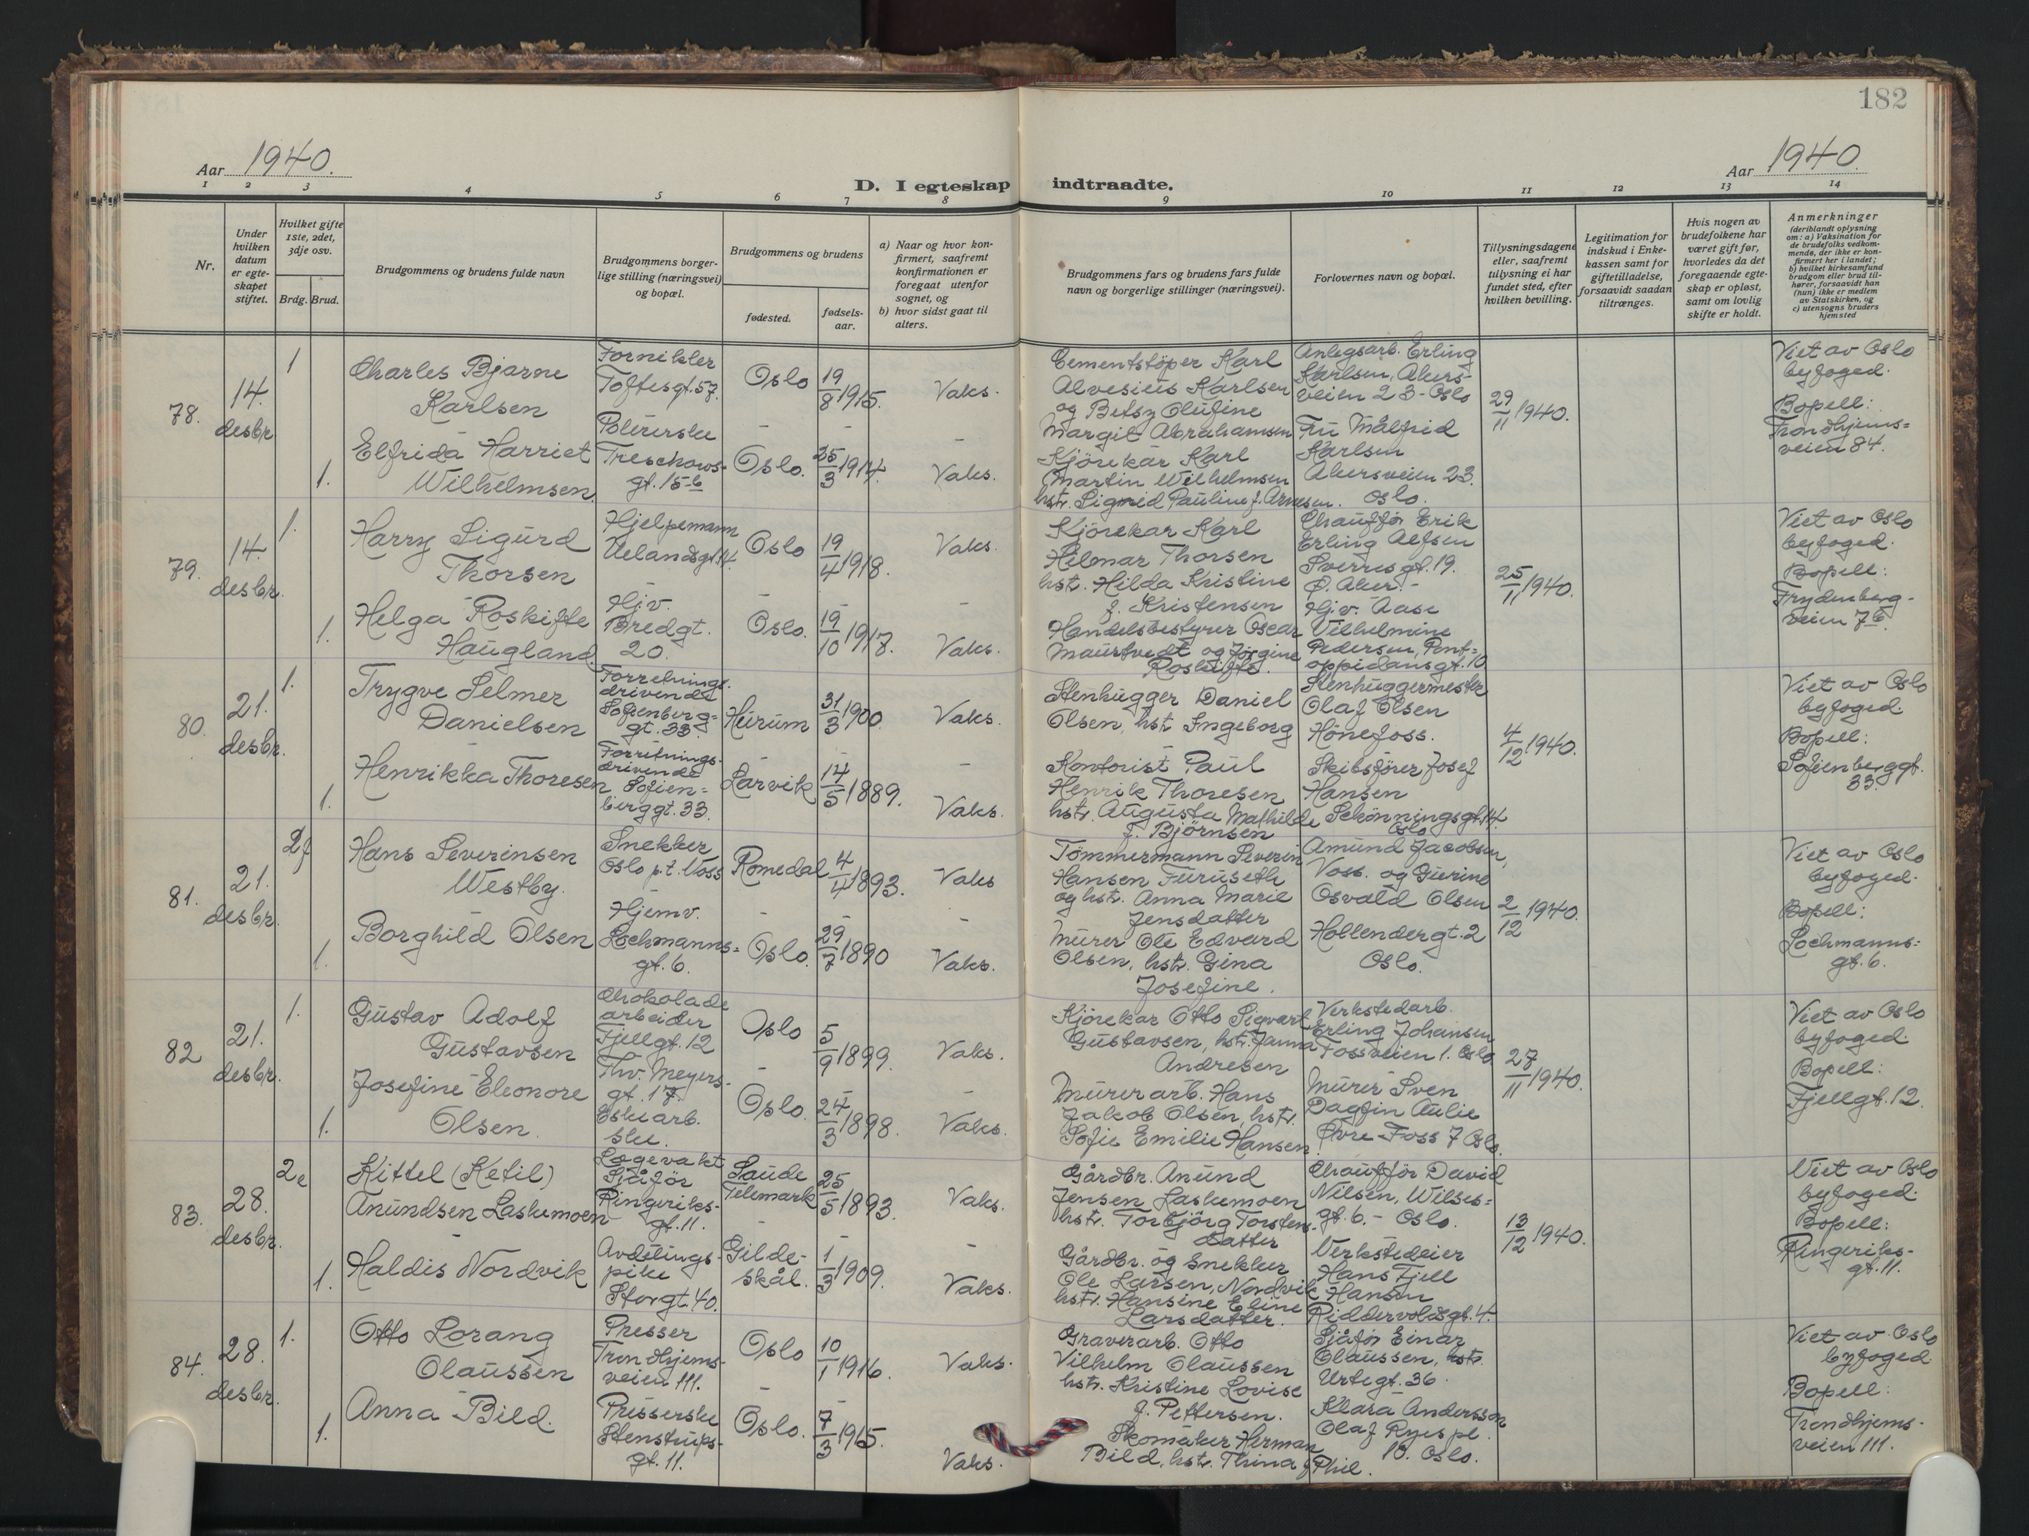 182
Aar 1940.
Aar 1940
D. I egteskap indtraadte.
1 2 3 4 5 6 7 8 9 10 11 12 13 14
Nr.
Under hvilken datum er egte-skapet stiftet.
Hvilket gifte 1ste, 2det, 3dje osv.
Brdg. Brud.
Brudgommens og brudens fulde navn
Brudgommens borger-lige stilling (næringsvei) og bopæl.
Brudgommens og brudens
fødested.
fødsels-aar.
a) Naar og hvor kon-firmert, saafremt konfirmationen er foregaat utenfor sognet, og
b) hvor sidst gaat til alters.
Brudgommens fars og brudens fars fulde navn og borgerlige stillinger (næringsvei).
Forlovernes navn og bopæl.
Tillysningsdagene eller, saafremt tillysning ei har fundet sted, efter hvilken bevilling.
Legitimation for indskud i Enke-kassen samt for giftetilladelse, forsaavidt saadan tiltrænges.
Hvis nogen av brudefolkene har været gift før, hvorledes da det foregaaende egte-skap er opløst, samt om lovlig skifte er holdt.
Anmerkninger
(deriblandt oplysning om: a) Vaksination for de brudefolks vedkom-mende, der ikke er kon-firmert her i landet; b) hvilket kirkesamfund brudgom eller brud til-hører, forsaavidt han (hun) ikke er medlem av Statskirken, og c) utensogns bruders hjemsted
78.
14. desbr.
1
Charles Bjarne
Karlsen
Fornikler
Toftesgt. 57.
Oslo
19/8 1915.
Vaks.
Cementstøper Karl
Alvesius Karlsen
og Betsy Olufine
Margit Abrahamsen
Anlegsarb. Erling
Karlsen, Akers-
veien 23 - Oslo
29/11 1940.
Viet av Oslo
byfoged.
Bopell:
Trondhjems=
veien 84.
1.
Elfrida Harriet
Wilhelmsen
Polererske
Treschows-
gt. 15 b
Oslo.
25/3 1914.
Vaks.
Kjørekar Karl
Martin Wilhelmsen
hstr. Sigrid Pauline f. Arnesen.
Fru Målfrid
Karlsen
Akersveien 23.
Oslo.
79.
14. desbr.
1.
Harry Sigurd
Thorsen
Hjelpemann
Uelandsgt. 14.
Oslo
19/4 1918.
Vaks.
Kjørekar Karl
Hilmar Thorsen
hst. Hilda Kristine
f. Kristensen
Chauffør Erik
Erling Alfsen
Sverresgt. 19.
Ø. Aker.
25/11 1940.
Viet av Oslo
byfoged.
Bopell:
Frydenberg-
veien 7b.
1.
Helga Roskifte
Haugland
Hjv.
Bredgt.
20.
Oslo.
19/10 1917.
Vaks.
Handelsbestyrer Oscar
Maurtvedt og Jørgine
Roskifte.
Hjv. Aase
Vilhelmine
Pedersen, Pont=
oppidansgt. 10
80.
21. desbr.
1.
Trygve Selmer
Danielsen
Forretnings-
drivende
Sofienberg=
gt. 33
Hurum
31/3 1900
Vaks.
Stenhugger Daniel
Olsen, hst. Ingeborg
Stenhuggermester
Olaf Olsen
Hønefoss.
4/12 1940.
Viet av Oslo
byfoged
Bopell:
Sofienberggt.
33.
1.
Henrikka Thoresen
Forretnings-
drivende
Sofien=
berggt. 33.
Larvik
14/5 1889.
Vaks.
Kontorist Paul
Henrik Thoresen
hstr. Augusta Mathilde
f. Bjørnsen
Skibsfører Josef
Hansen
Schønningsgt. 14.
Oslo
81.
21. desbr.
2 f
Hans Severinsen
Westby.
Snekker
Oslo p.t. Voss
Romedal
4/4 1893.
Vaks
Tømmermann Severin
Hansen Furuseth
og hst. Anna Marie
Jensdatter
Amund Jacobsen,
Voss. og Gurine
2/12 1940.
Viet av Oslo
byfoged.
Bopell:
Lochmanns=
gt. 6.
1.
Borghild Olsen
Hjemv.
Lochmanns=
gt. 6.
Oslo.
29/7 1890
Vaks.
Murer Ole Edvard
Olsen, hst. Gina
Josefine.
Osvald Olsen
Hollendergt. 2
Oslo.
82
21. desbr.
1.
Gustav Adolf
Gustavsen
Chokolade
arbeider
Fjellgt. 12
Oslo
5/9 1899.
Vaks.
Kjørekar Otto Sigvart
Gustavsen, hst. Janna
Andresen
Verkstedarb.
Erling Johansen
Fossveien 1. Oslo
27/11 1940.
Viet av Oslo
byfoged.
Bopell:
Fjellgt. 12.
1.
Josefine Eleonore
Olsen.
Thv. Meyers-
gt. 17.
Eskearb.
ske.
Oslo.
24/3 1898.
Vaks.
Murerarb. Hans
Jakob Olsen, hst.
Sofie Emilie Hansen.
Murer Sven
Dagfin Aulie
Øvre Foss 7 Oslo.
83.
28. desbr.
2 e
Kittel (Ketil)
Anundsen Laskemoen
Legevakt
Sjåfør
Ringeriks-
gt. 11.
Saude
Telemark
25/5 1893.
Vaks.
Gårdbr. Anund
Jensen Laskemoen
hst. Torbjörg Torstens-
datter
Chauffør David
Nilsen, Wilses=
gt. 6. - Oslo.
13/12 1940.
Viet av Oslo
byfoged.
Bopell:
Ringeriks-
gt. 11.
1.
Haldis Nordvik
Avdelings-
pike
Storgt. 40.
Gilde-
skål.
1/3 1909.
Vaks.
Gårdbr. og snekker
Ole Larsen, Nordvik
hst. Hansine Eline
Larsdatter.
Verkstedeier
Hans Fjell
Hansen
Riddervoldsgt. 4.
84.
28. desbr.
1.
Otto Lorang
Olaussen
Presser
Trondhjems-
veien 111.
Oslo
10/1 1916.
Vaks.
Graverarb. Otto
Vilhelm Olaussen
hst. Kristine Lovise
f. Pettersen.
Sjåfør Einar
Olaussen,
Urtegt. 36.
Viet av Oslo
byfoged
Bopell:
Trondhjems-
veien 111.
1.
Anna Bild.
Presserske
Stenstrups-
gt. 11.
Oslo.
7/3 1915.
Vaks.
Skomaker Herman
Bild, hst. Thina f. Phil.
Klara Andersson
Olaf Ryes pl.
13. Oslo.